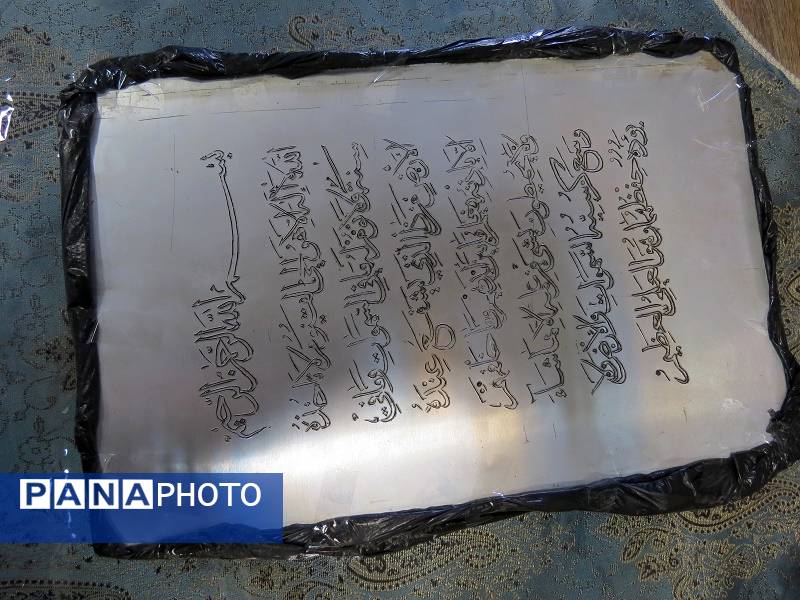 بسم الله الرحمن الرحیم
الله لا اله الا هو الحی القیوم لا تاخذه
سنة و لا نوم له ما فی السموات و ما فی
الارض من ذا الذی یشفع عنده
الا باذنه یعلم ما بین ایدیهم و ما خلفهم
و لا یحیطون بشیء من علمه الا بما شاء
وسع کرسیه السموات و الارض و لا
یوده حفظهما و هو العلی العظیم
PANAPHOTO